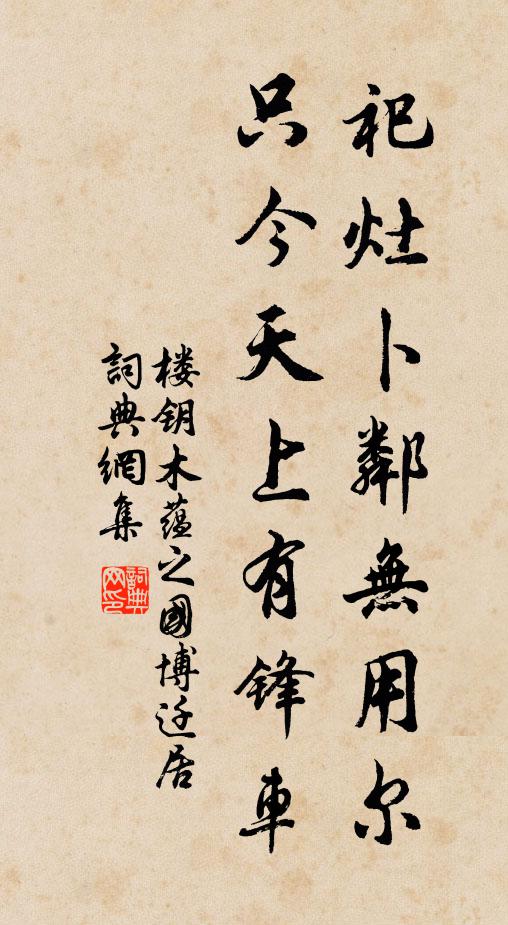 祀灶卜鄰無用尔
只今天上有锋車
楼钥木蕴之國博迁居
詞典網集
詞典网印